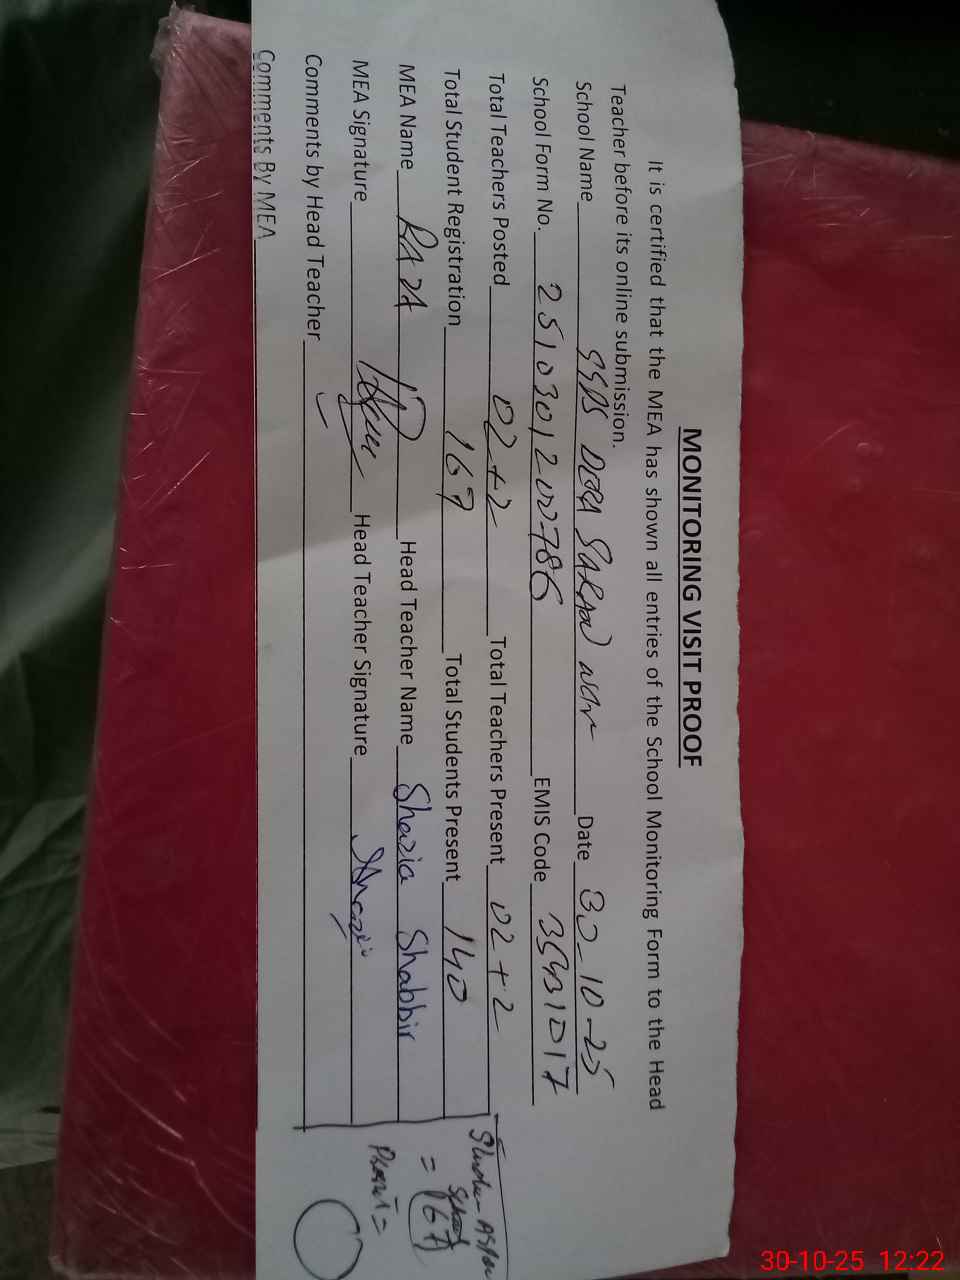 MONITORING VISIT PROOF
It is certified that the MEA has shown all entries of the School Monitoring Form to the Head
Teacher before its online submission.
School Name Date 30-10-25
School Form No. 2510301200786 EMIS Code 35431017
Total Teachers Posted 02+2 Total Teachers Present 02+2
Total Student Registration 167 Total Students Present 140
MEA Name RAZA Head Teacher Name Shazia Shabbir
MEA Signature Head Teacher Signature
Comments by Head Teacher
Comments By MEA
= 167
30-10-25 12:22